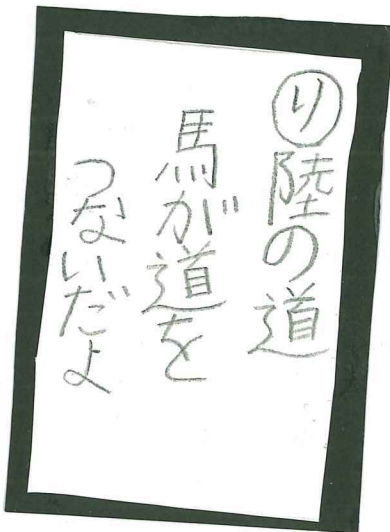 り陸の道
馬が道を
つないだよ